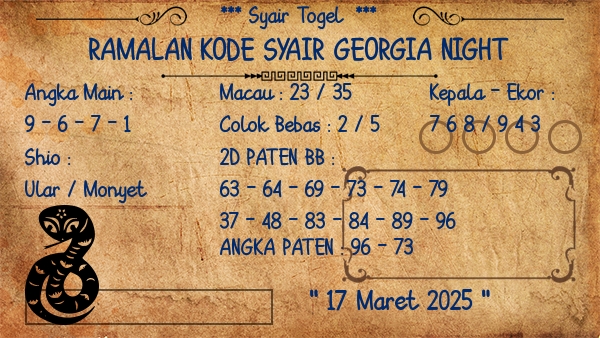 *** Syair Togel ***
RAMALAN KODE SYAIR GEORGIA NIGHT
Angka Main :
9 - 6 - 7 - 1
Shio :
Ular / Monyet
Macau : 23 / 35
Colok Bebas : 2 / 5
2D PATEN BB :
63 - 64 - 69 - 73 - 74 - 79
37 - 48 - 83 - 84 - 89 - 96
ANGKA PATEN : 96 - 73
Kepala - Ekor :
7 6 8 / 9 4 3
" 17 Maret 2025 "